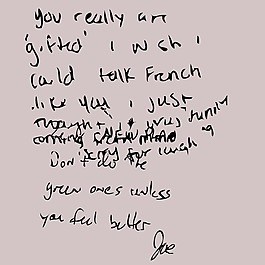 you really are
'gifted' i wish i
could talk French
like you i just
thought it was funny
coming
Don't do the
green ones unless
you feel better
Joe